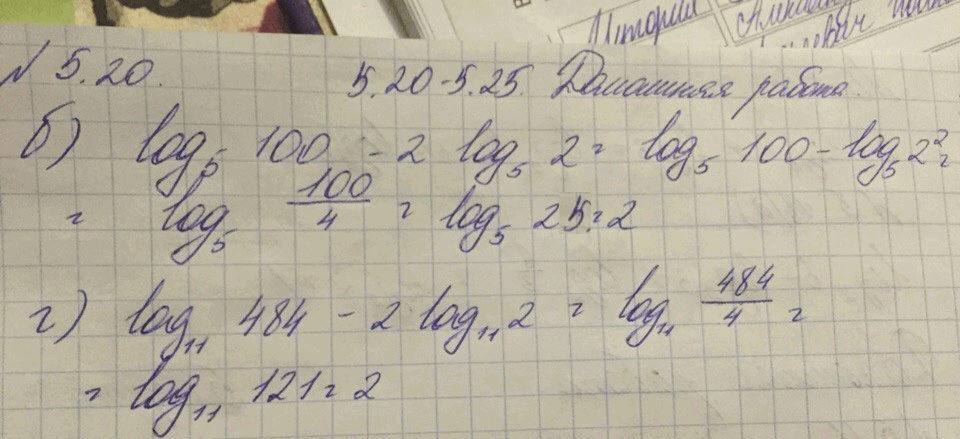 История
Алексан
евич
N 5.20. 5.20-5.25. Домашняя работа.
б) log₅ 100 - 2 log₅ 2 = log₅ 100 - log₅ 2² =
= log₅ 100/4 = log₅ 25 = 2
г) log₁₁ 484 - 2 log₁₁ 2 = log₁₁ 484/4 =
= log₁₁ 121 = 2